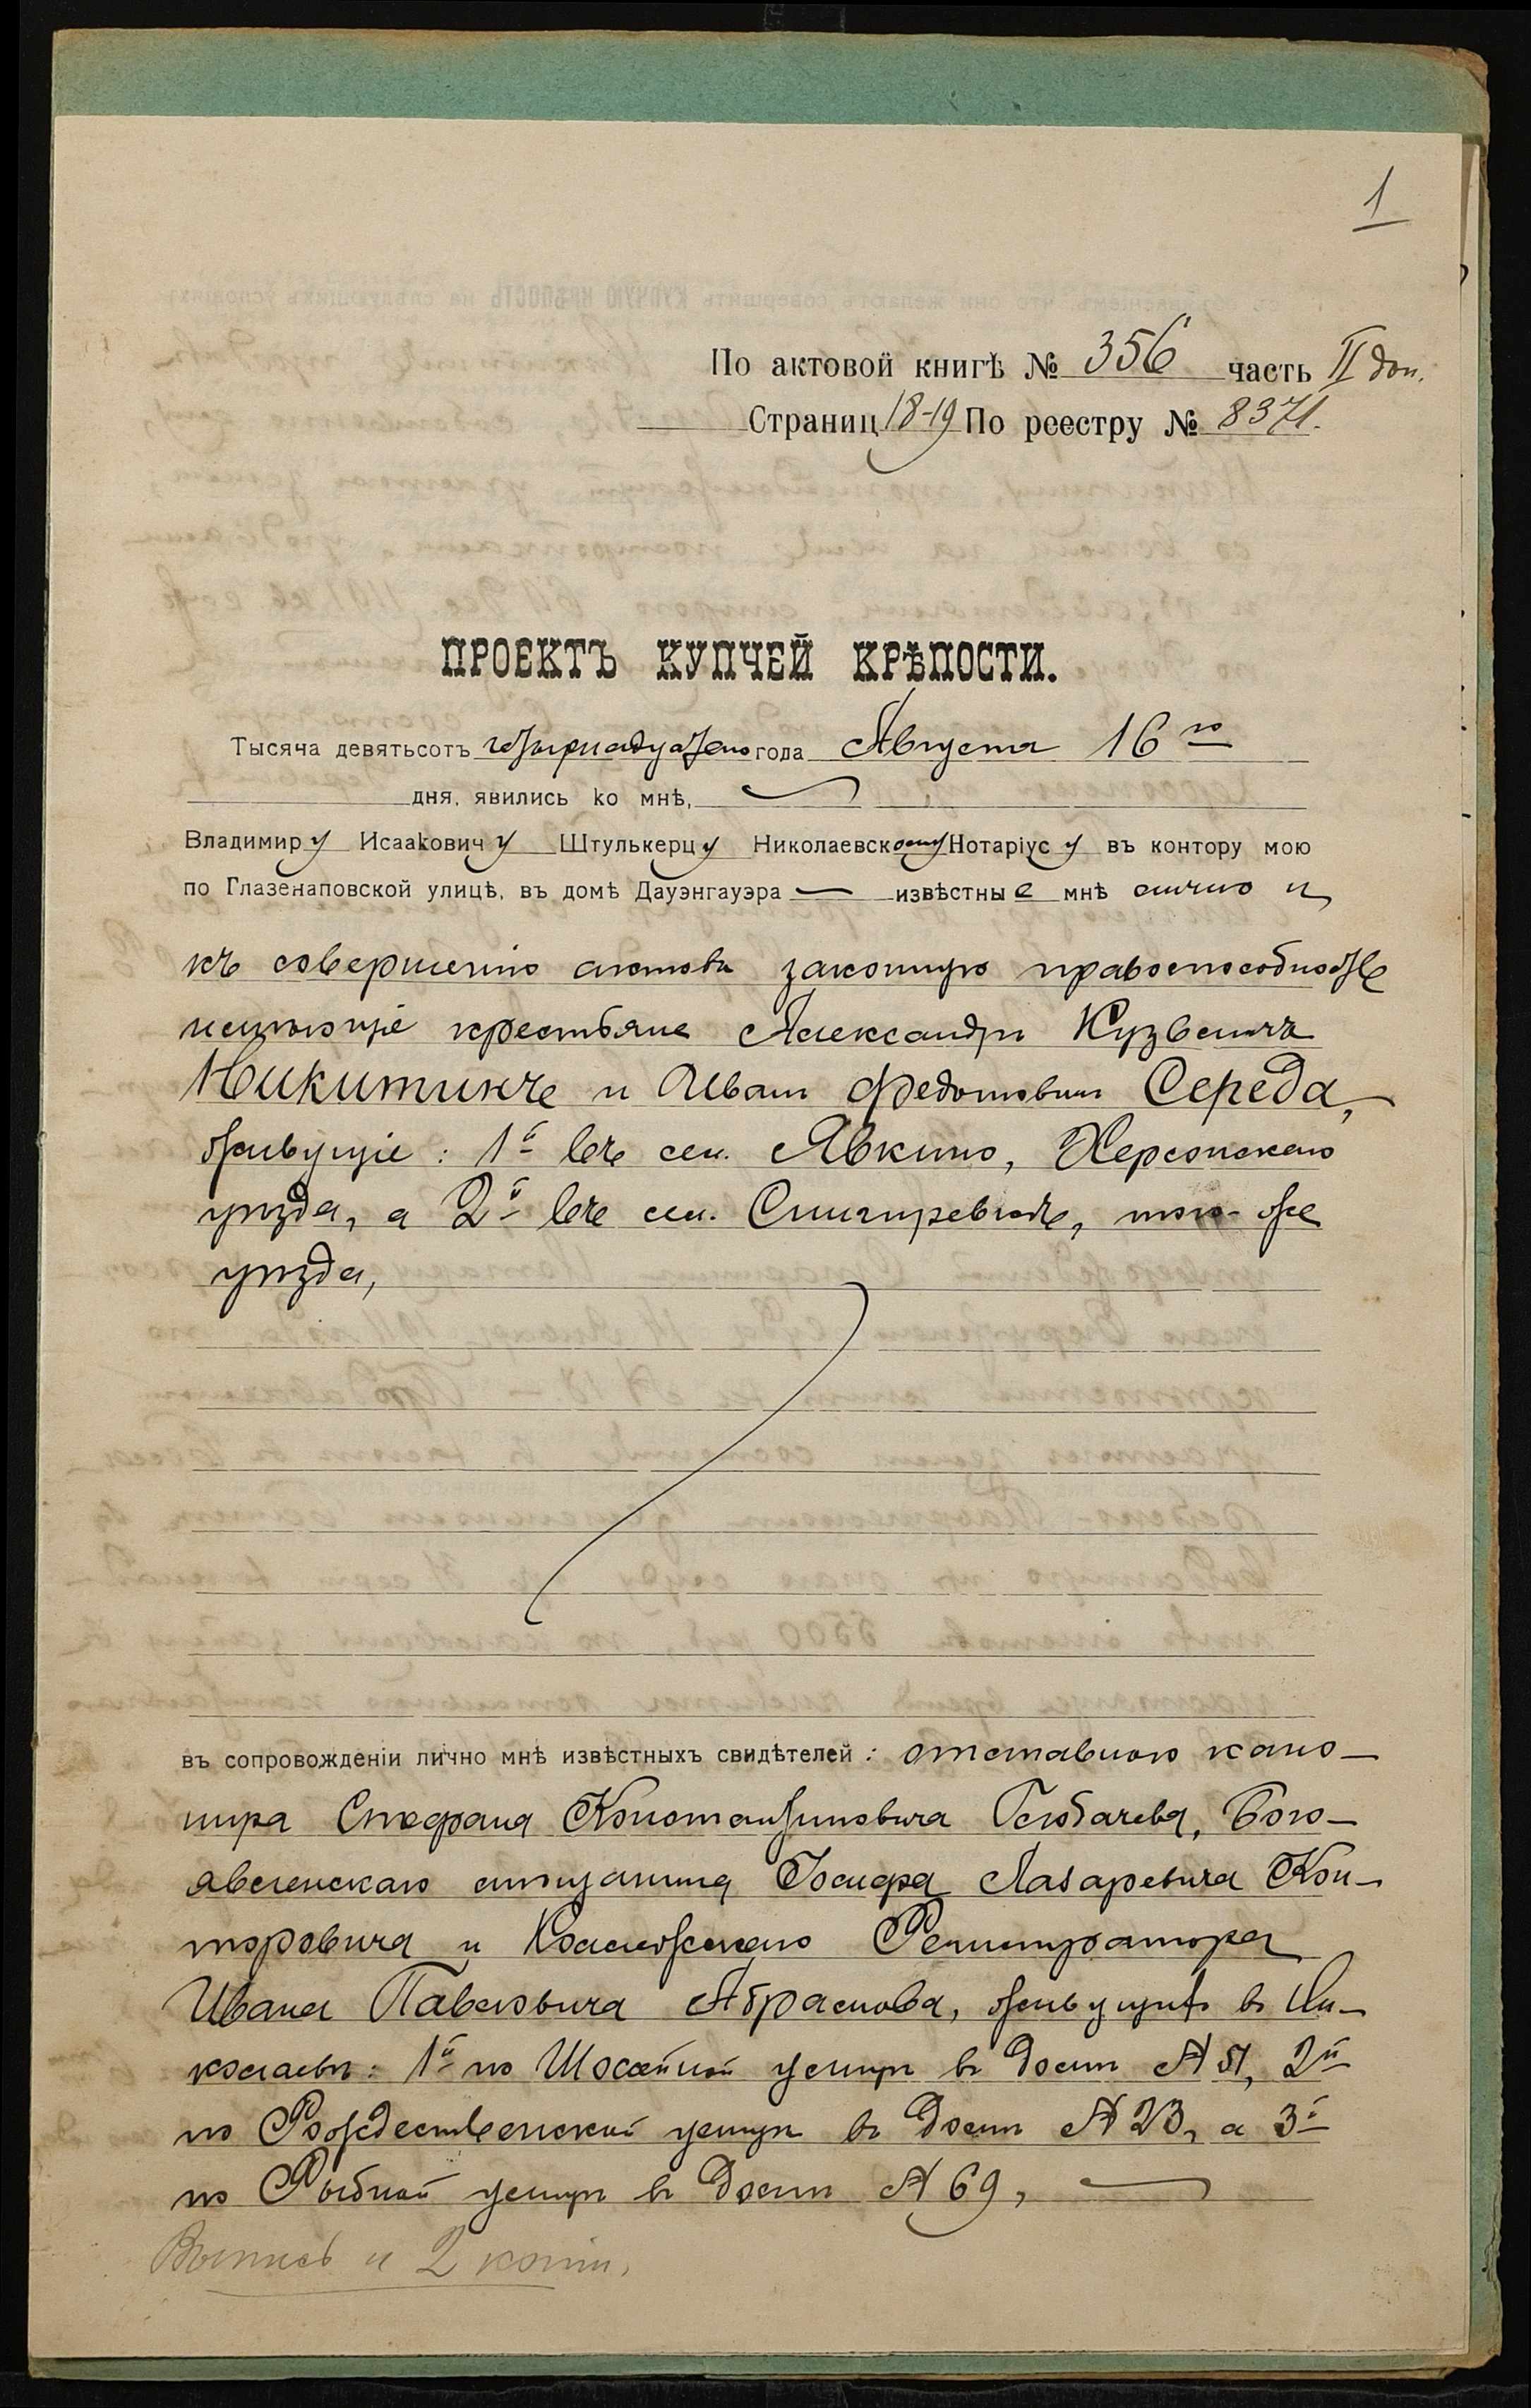 1
По актовой книгѣ № 356 часть II доп.
Страниц 18-19 По реестру № 8371.
ПРОЕКТЪ КУПЧЕЙ КРѢПОСТИ.
Тысяча девятьсотъ четырнадцатаго года Августа 16 го
дня, явились ко мнѣ,
Владимиру Исааковичу Штулькерцу Николаевскому Нотаріусу въ контору мою
по Глазенаповской улицѣ, въ домѣ Дауэнгауэра — извѣстные мнѣ лично и
къ совершенію актовъ законную правоспособность
имѣющіе крестьяне Александръ Кузьмичъ
Никитинъ и Иванъ Федотовичъ Середа,
живущіе: 1й въ сел. Явкино, Херсонскаго
уѣзда, а 2й въ сел. Снигиревкѣ, того-же
уѣзда,
въ сопровожденіи лично мнѣ извѣстныхъ свидѣтелей: отставного кано-
нира Стефана Константиновича Горбачева, Бого-
явленскаго мѣщанина Іосифа Лазаревича Кон-
торовича и Коллежскаго Регистратора
Ивана Павловича Абрамова, живущихъ въ Ни-
колаевѣ: 1й по Шоссейной улицѣ въ домѣ № 51, 2й
по Рождественской улицѣ въ домѣ № 23, а 3й
по Рыбной улицѣ въ домѣ № 69,
Выпись и 2 копіи.